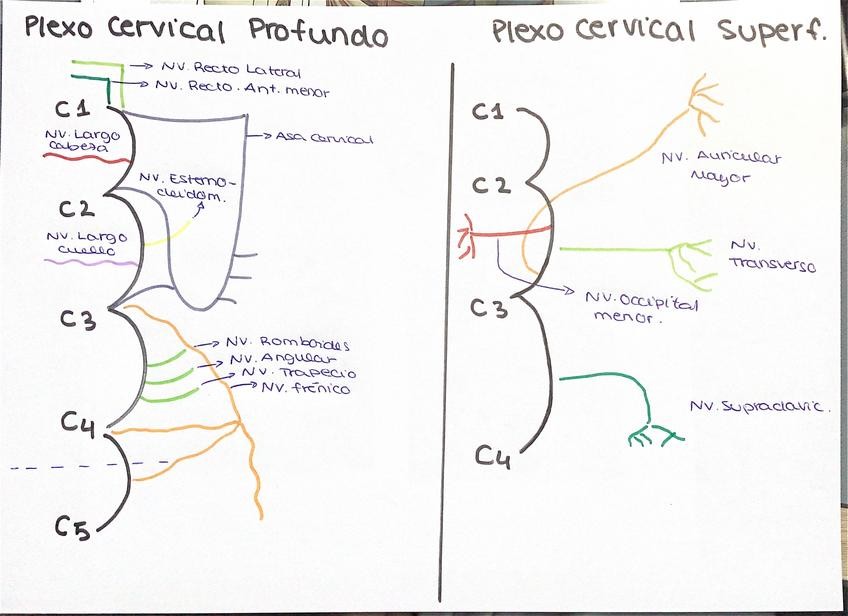 Plexo Cervical Profundo
NV. Recto Lateral
NV. Recto. Ant. menor
C1
NV. Largo
cabeza
Asa cervical
NV. Esterno-
cleidom.
C2
NV. Largo
cuello
C3
NV. Romboides
NV. Angular
NV. Trapecio
NV. frénico
C4
C5
Plexo cervical Superf.
C1
NV. Auricular
Mayor
C2
NV.
Transverso
C3
NV. Occipital
menor.
NV. Supraclavic.
C4